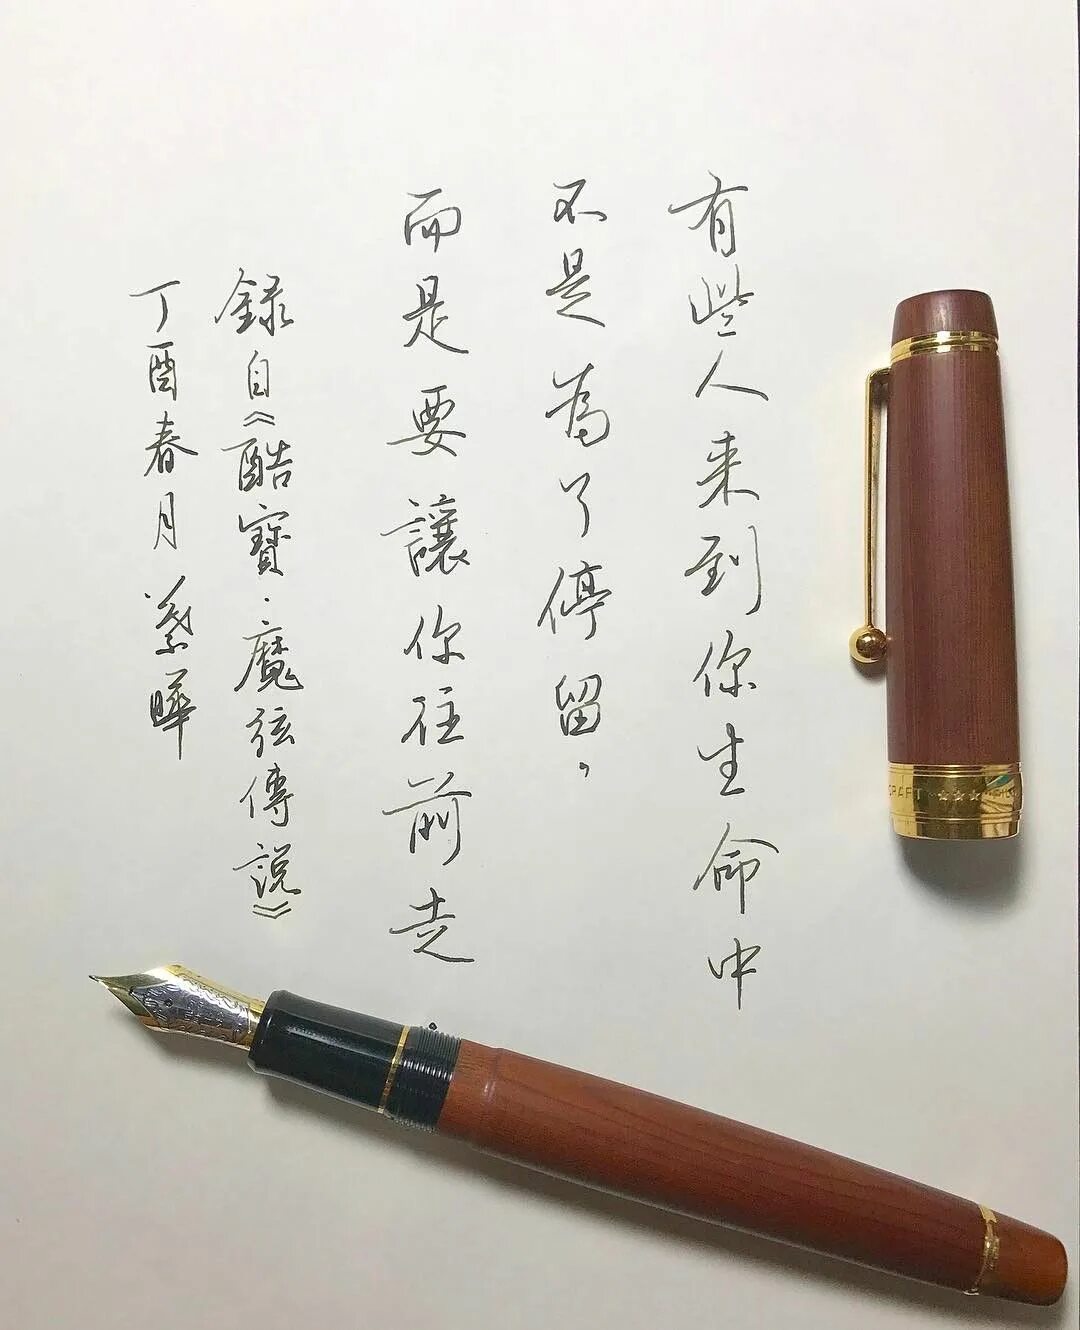 有些人来到你生命中
不是為了停留，
而是要讓你往前走
録自《酷寶·魔弦傳説》
丁酉春月 蔡曄
CRAFT ★★★